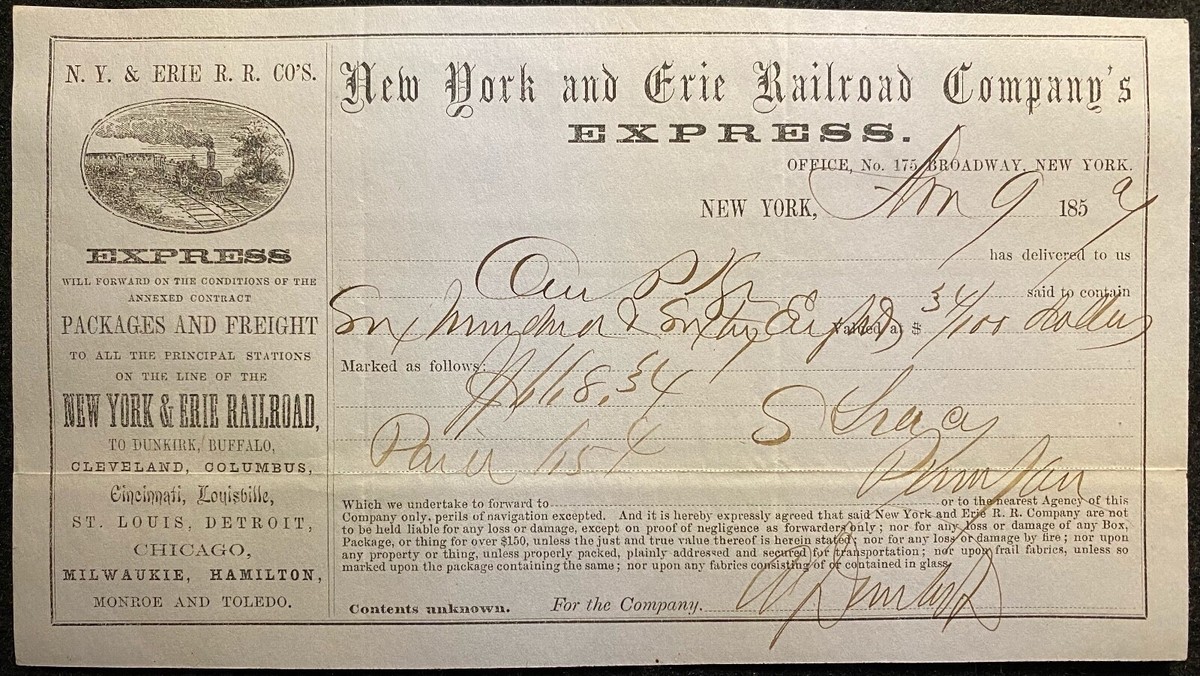 N. Y. & ERIE R. R. CO'S.
EXPRESS
WILL FORWARD ON THE CONDITIONS OF THE
ANNEXED CONTRACT
PACKAGES AND FREIGHT
TO ALL THE PRINCIPAL STATIONS
ON THE LINE OF THE
NEW YORK & ERIE RAILROAD,
TO DUNKIRK, BUFFALO,
CLEVELAND, COLUMBUS,
Cincinnati, Louisville,
ST. LOUIS, DETROIT,
CHICAGO,
MILWAUKIE, HAMILTON,
MONROE AND TOLEDO.
New York and Erie Railroad Company's
EXPRESS.
OFFICE, No. 175 BROADWAY, NEW YORK.
NEW YORK, Nov 9 1859
has delivered to us
One P said to contain
Six hundred & Sixty Eight Valued at $ 34/100 dollars
Marked as follows:
$668.34
S Tracy
Penn Yan
Which we undertake to forward to or to the nearest Agency of this
Company only, perils of navigation excepted. And it is hereby expressly agreed that said New York and Erie R. R. Company are not
to be held liable for any loss or damage, except on proof of negligence as forwarders only; nor for any loss or damage of any Box,
Package, or thing for over $150, unless the just and true value thereof is herein stated; nor for any loss or damage by fire; nor upon
any property or thing, unless properly packed, plainly addressed and secured for transportation; nor upon frail fabrics, unless so
marked upon the package containing the same; nor upon any fabrics consisting of or contained in glass.
Contents unknown. For the Company.